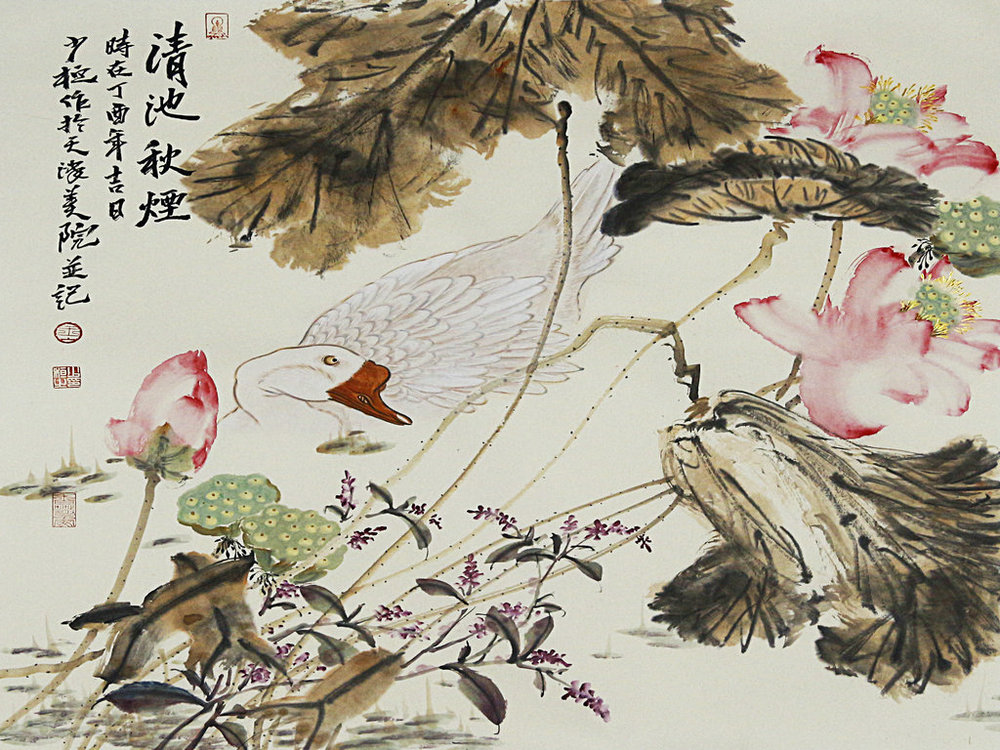 清池秋煙
時在丁酉年吉日
少極作於天津美院並記